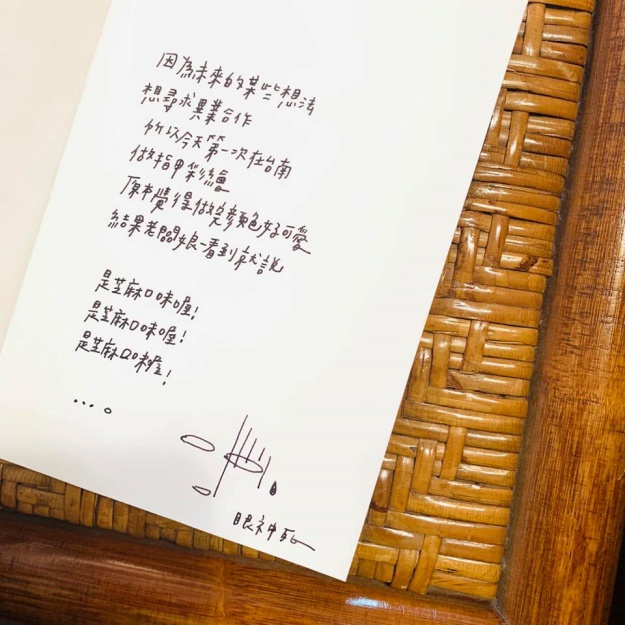 因為未來的某些想法
想尋求異業合作
所以今天第一次在台南
做指甲彩繪
原本覺得做完顏色好可愛
結果老闆娘一看到就說
是芝麻口味喔!
是芝麻口味喔!
是芝麻口味喔!
...。
眼神死